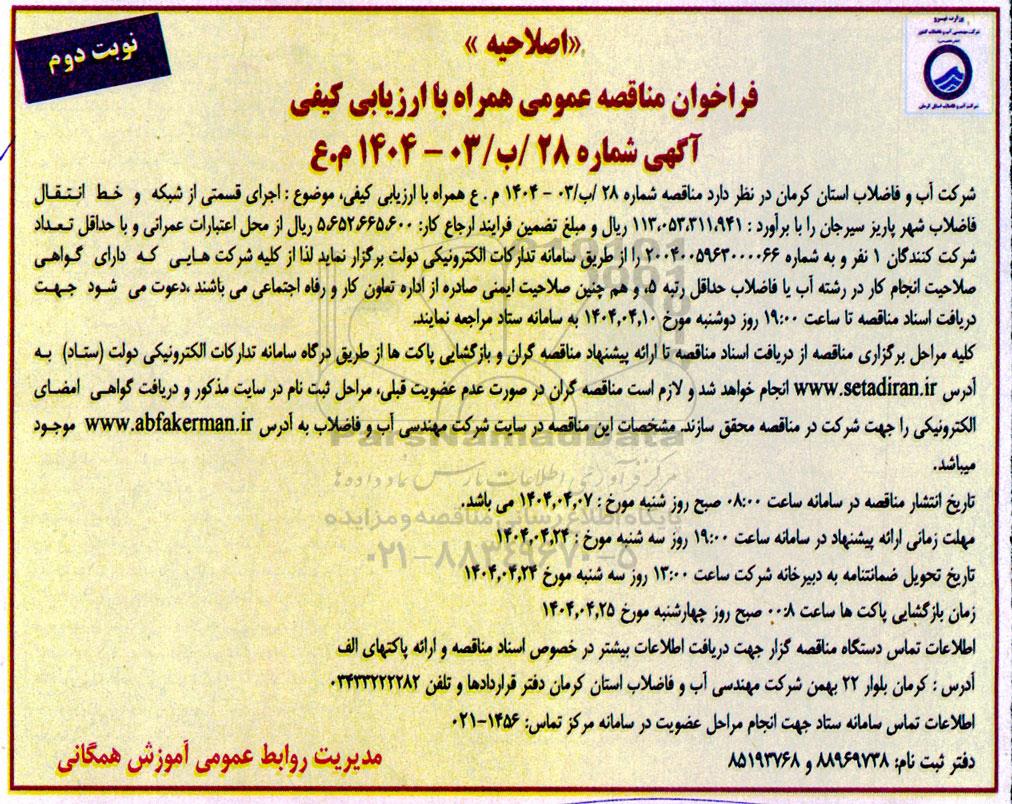 وزارت نیرو
شرکت مهندسی آب و فاضلاب کشور
شرکت آب و فاضلاب استان کرمان
نوبت دوم
«اصلاحیه »
فراخوان مناقصه عمومی همراه با ارزیابی کیفی
آگهی شماره ۲۸ /ب/۰۳ - ۱۴۰۴ م.ع
شرکت آب و فاضلاب استان کرمان در نظر دارد مناقصه شماره ۲۸ /ب/۰۳ - ۱۴۰۴ م . ع همراه با ارزیابی کیفی، موضوع : اجرای قسمتی از شبکه و خط انتقال
فاضلاب شهر پاریز سیرجان را با برآورد : ۱۱۳،۰۵۳،۳۱۱،۹۴۱ ریال و مبلغ تضمین فرایند ارجاع کار: ۵،۶۵۲،۶۶۵،۶۰۰ ریال از محل اعتبارات عمرانی و با حداقل تعداد
شرکت کنندگان ۱ نفر و به شماره ۲۰۰۴۰۰۵۹۶۳۰۰۰۰۶۶ را از طریق سامانه تدارکات الکترونیکی دولت برگزار نماید لذا از کلیه شرکت هایی که دارای گواهی
صلاحیت انجام کار در رشته آب یا فاضلاب حداقل رتبه ۵، و هم چنین صلاحیت ایمنی صادره از اداره تعاون کار و رفاه اجتماعی می باشند ،دعوت می شود جهت
دریافت اسناد مناقصه تا ساعت ۱۹:۰۰ روز دوشنبه مورخ ۱۴۰۴,۰۴,۱۰ به سامانه ستاد مراجعه نمایند.
کلیه مراحل برگزاری مناقصه از دریافت اسناد مناقصه تا ارائه پیشنهاد مناقصه گران و بازگشایی پاکت ها از طریق درگاه سامانه تدارکات الکترونیکی دولت (ستاد) به
آدرس www.setadiran.ir انجام خواهد شد و لازم است مناقصه گران در صورت عدم عضویت قبلی، مراحل ثبت نام در سایت مذکور و دریافت گواهی امضای
الکترونیکی را جهت شرکت در مناقصه محقق سازند. مشخصات این مناقصه در سایت شرکت مهندسی آب و فاضلاب به آدرس www.abfakerman.ir موجود
میباشد.
ParsNamadData
مرکز فرآوری اطلاعات پارس نماد داده ها
تاریخ انتشار مناقصه در سامانه ساعت ۰۸:۰۰ صبح روز شنبه مورخ : ۱۴۰۴,۰۴,۰۷ می باشد.
پایگاه اطلاع رسانی مناقصه و مزایده
مهلت زمانی ارائه پیشنهاد در سامانه ساعت ۱۹:۰۰ روز سه شنبه مورخ : ۱۴۰۴,۰۴,۲۴
۰۲۱-۸۸۳۴۹۶۷۰-۵
تاریخ تحویل ضمانتنامه به دبیرخانه شرکت ساعت ۱۳:۰۰ روز سه شنبه مورخ ۱۴۰۴,۰۴,۲۴
زمان بازگشایی پاکت ها ساعت ۰۰:۸ صبح روز چهارشنبه مورخ ۱۴۰۴,۰۴,۲۵
اطلاعات تماس دستگاه مناقصه گزار جهت دریافت اطلاعات بیشتر در خصوص اسناد مناقصه و ارائه پاکتهای الف
آدرس : کرمان بلوار ۲۲ بهمن شرکت مهندسی آب و فاضلاب استان کرمان دفتر قراردادها و تلفن ۰۳۴۳۳۲۲۲۲۸۲
اطلاعات تماس سامانه ستاد جهت انجام مراحل عضویت در سامانه مرکز تماس: ۱۴۵۶-۰۲۱
دفتر ثبت نام: ۸۸۹۶۹۷۳۸ و ۸۵۱۹۳۷۶۸
مدیریت روابط عمومی آموزش همگانی